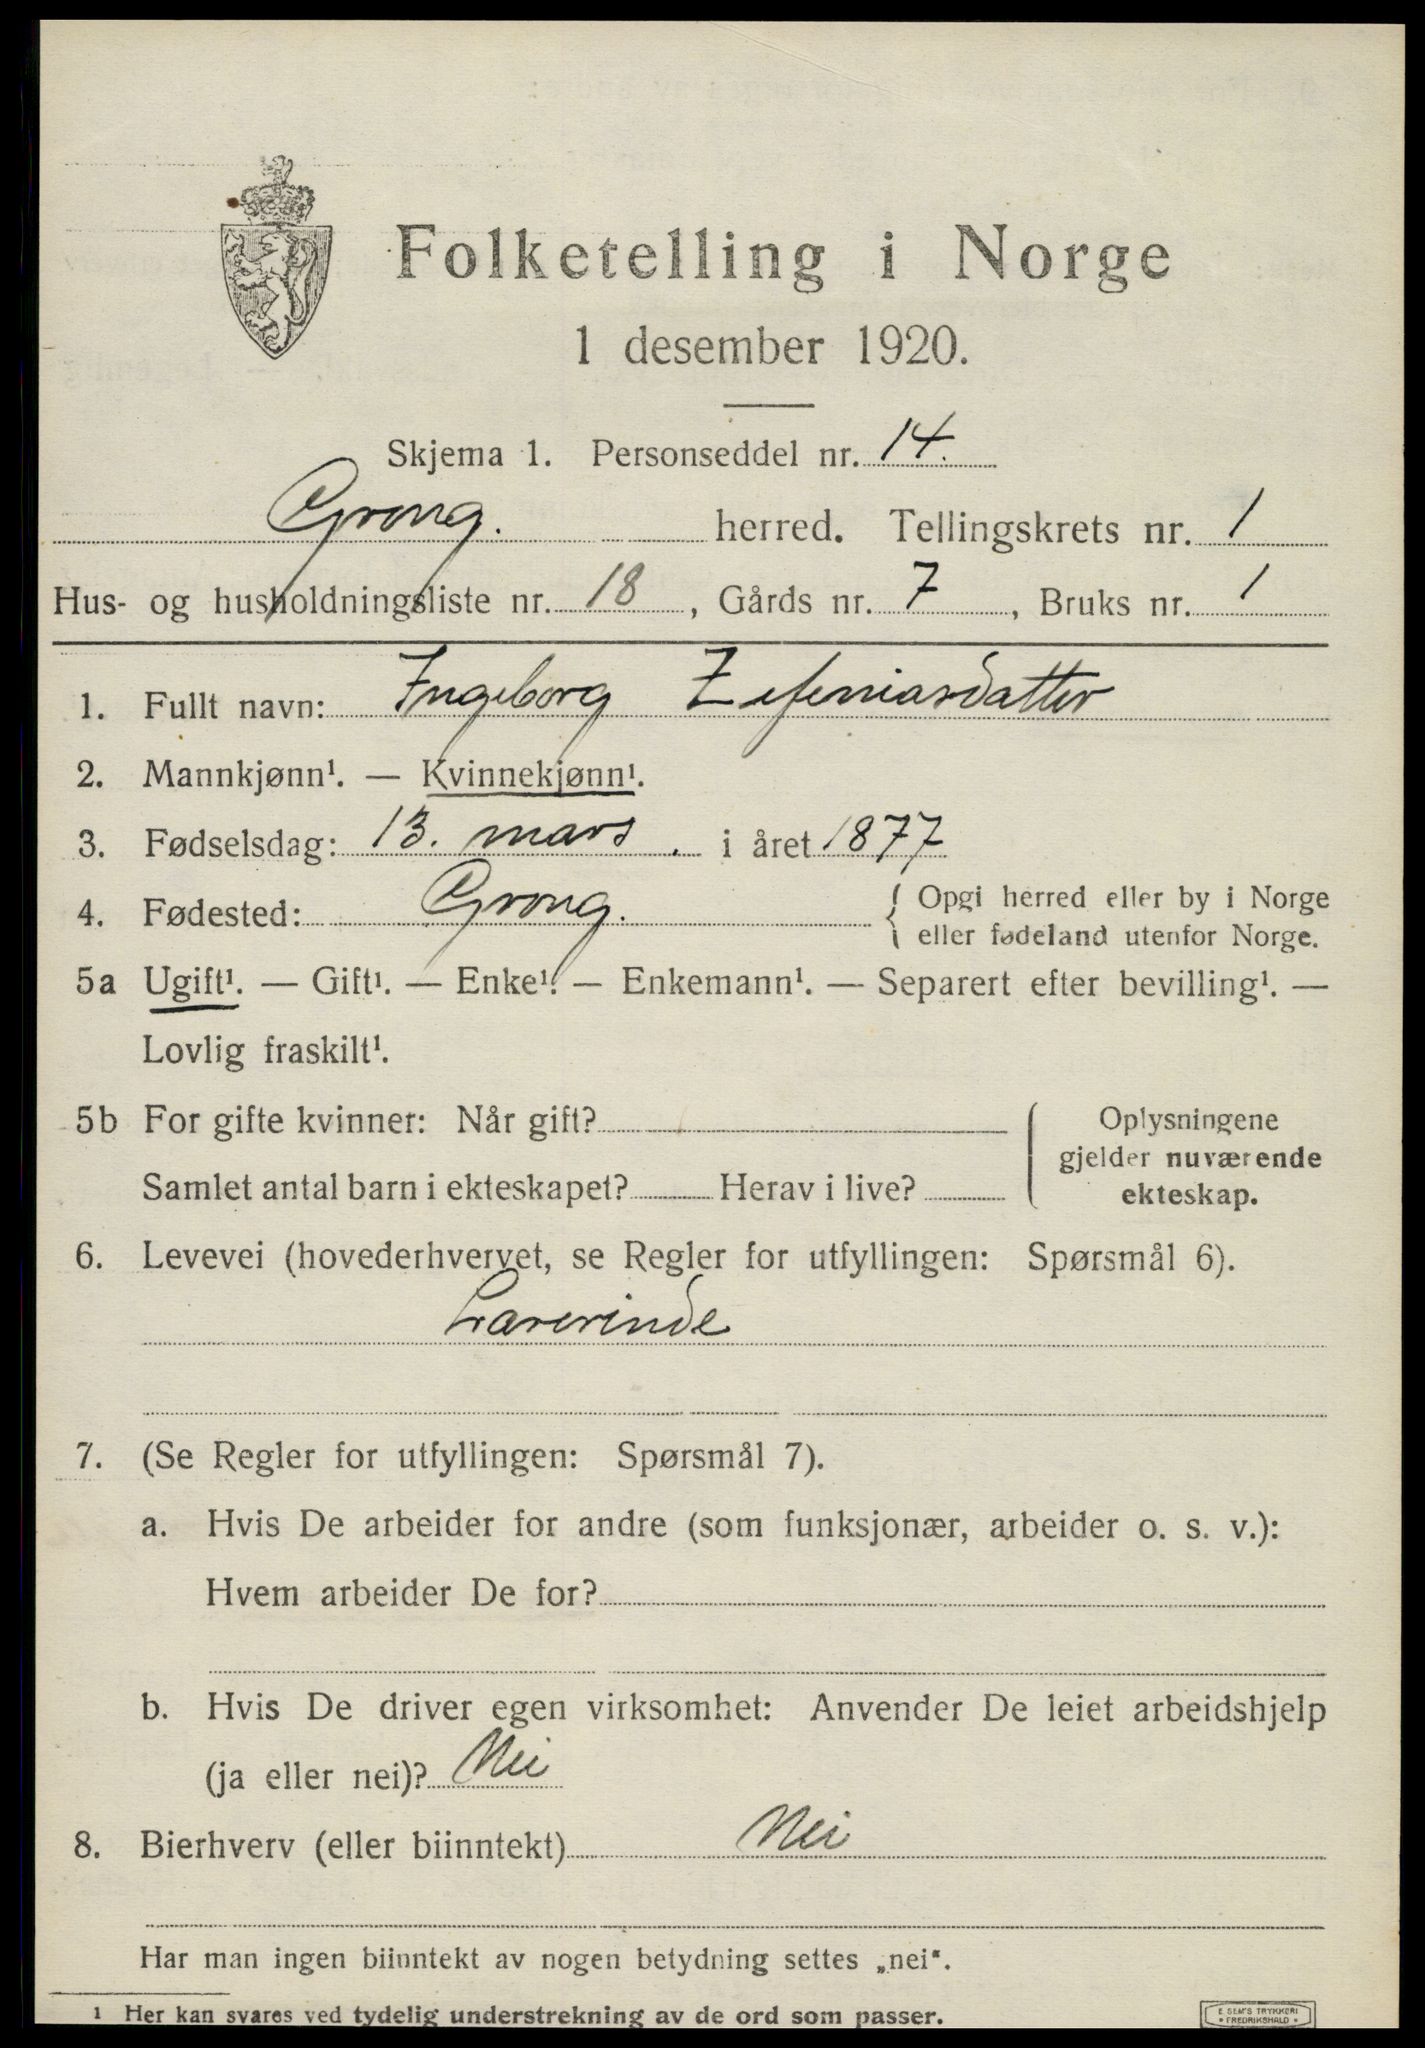 Folketelling i Norge
1 desember 1920.
Skjema 1. Personseddel nr. 14.
Grong. herred. Tellingskrets nr. 1
Hus- og husholdningsliste nr. 18, Gårds nr. 7, Bruks nr. 1
1. Fullt navn: Ingeborg Zefeniasdatter
2. Mannkjønn¹. — Kvinnekjønn¹.
3. Fødselsdag: 13. mars. i året 1877
4. Fødested: Grong. { Opgi herred eller by i Norge
eller fødeland utenfor Norge.
5a Ugift¹. — Gift¹. — Enke¹. — Enkemann¹. — Separert efter bevilling¹. —
Lovlig fraskilt¹.
5b For gifte kvinner: Når gift? { Oplysningene
gjelder nuværende
Samlet antal barn i ekteskapet? Herav i live? ekteskap.
6. Levevei (hovederhvervet, se Regler for utfyllingen: Spørsmål 6).
Lærerinde
7. (Se Regler for utfyllingen: Spørsmål 7).
a. Hvis De arbeider for andre (som funksjonær, arbeider o. s. v.):
Hvem arbeider De for?
b. Hvis De driver egen virksomhet: Anvender De leiet arbeidshjelp
(ja eller nei)? Nei
8. Bierhverv (eller biinntekt) Nei
Har man ingen biinntekt av nogen betydning settes „nei“.
1 Her kan svares ved tydelig understrekning av de ord som passer.
E SEM'S TRYKKERI
• FREDRIKSHALD •